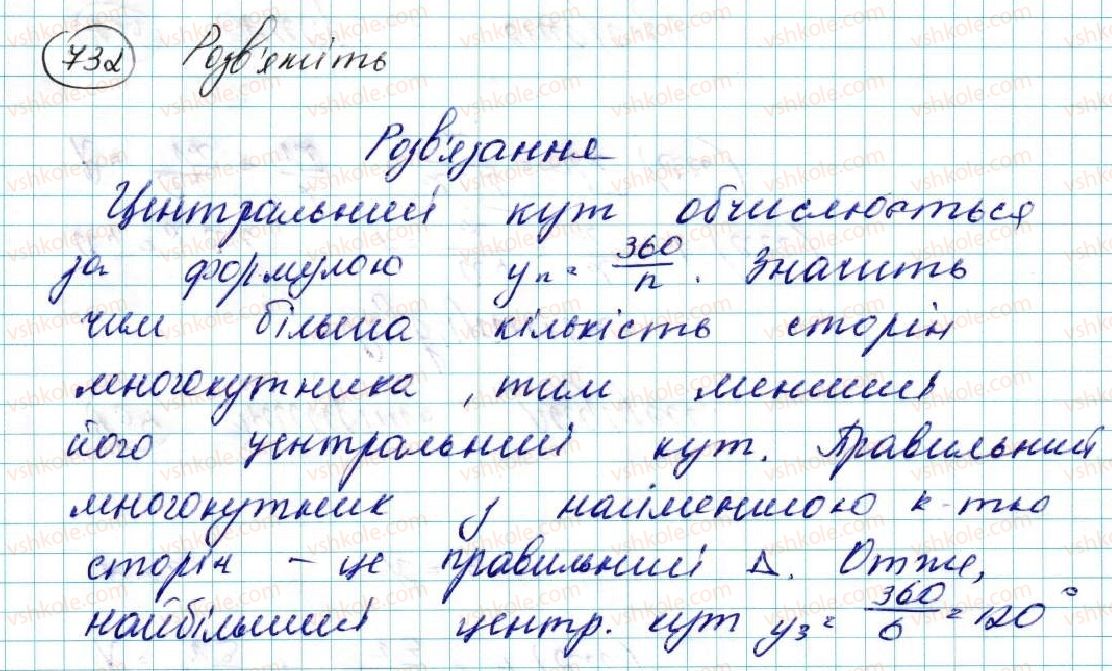 732 Розв'яжіть
Розв'язання
Центральний кут обчислюється
за формулою yn = 360/n. Значить
чим більша кількість сторін
многокутника, тим менший
його центральний кут. Правильний
многокутник з найменшою к-тю
сторін – це правильний Δ. Отже,
найбільший центр. кут y3 = 360/6 = 120°